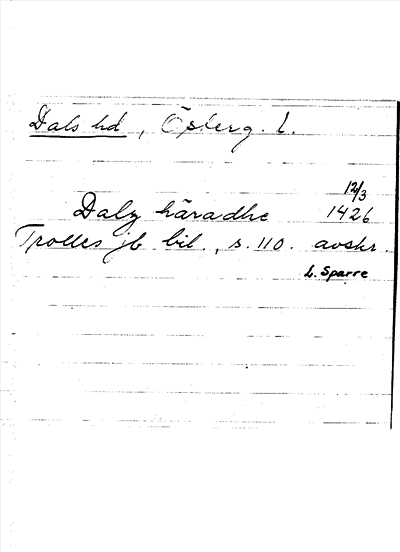 Dals hd, Österg. L.
12/3
Dalz häradhe 1426
Trolles jb bil., s. 110. avskr.
L. Sparre